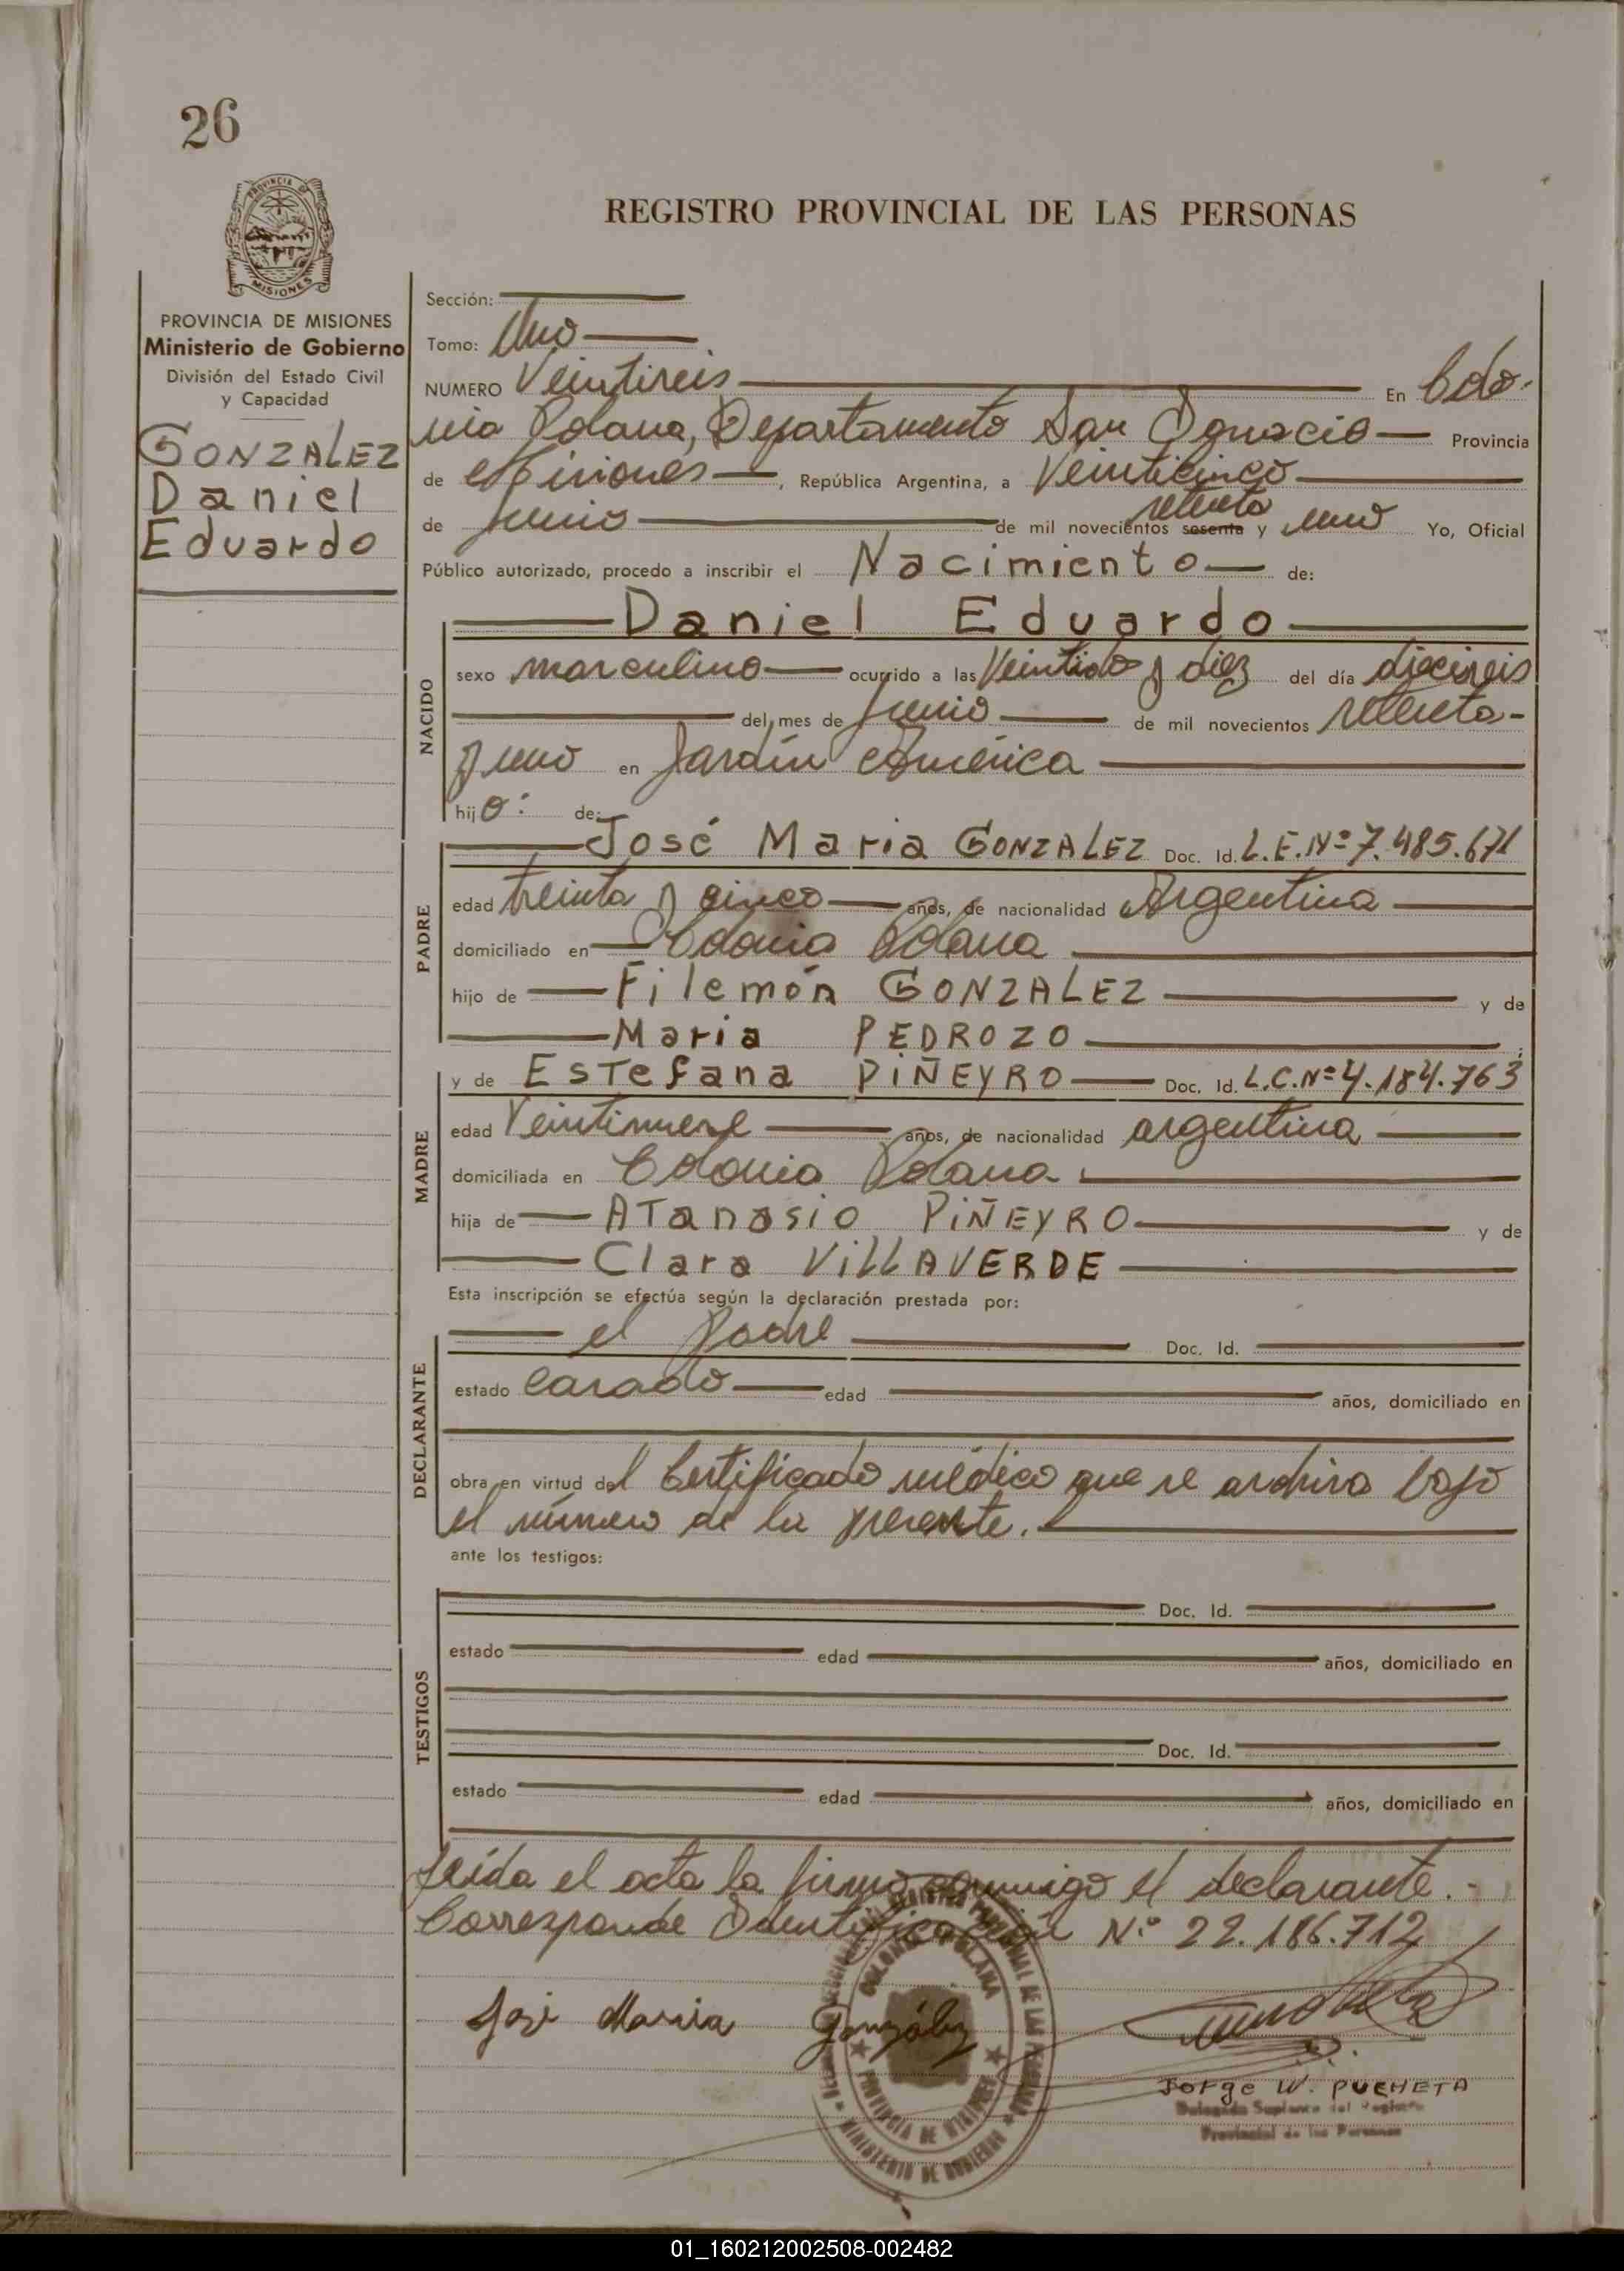 26
PROVINCIA DE
MISIONES
REGISTRO PROVINCIAL DE LAS PERSONAS
PROVINCIA DE MISIONES
Ministerio de Gobierno
División del Estado Civil
y Capacidad
GONZALEZ
Daniel
Eduardo
Sección:
Tomo: Uno
NUMERO Veintiseis En Colo-
nia Polana, Departamento San Ignacio Provincia
de Misiones, República Argentina, a Veinticinco
setenta
de Junio de mil novecientos sesenta y uno Yo, Oficial
Público autorizado, procedo a inscribir el Nacimiento de:
Daniel Eduardo
NACIDO
sexo masculino ocurrido a las Veintidos y diez del día dieciseis
del mes de Junio de mil novecientos setenta-
y uno en Jardín América
hijo: de:
PADRE
José Maria GONZALEZ Doc. Id. L.E.Nº 7.485.671
edad treinta y cinco años, de nacionalidad Argentina
domiciliado en Colonia Polana
hijo de Filemón GONZALEZ y de
Maria PEDROZO
MADRE
y de Estefana PIÑEYRO Doc. Id. L.C.Nº 4.184.763
edad Veintinueve años, de nacionalidad argentina
domiciliada en Colonia Polana
hija de Atanasio PIÑEYRO y de
Clara VILLAVERDE
Esta inscripción se efectúa según la declaración prestada por:
DECLARANTE
el padre Doc. Id.
estado casado edad años, domiciliado en
obra en virtud del Certificado médico que se archiva bajo
el número de la presente.
ante los testigos:
TESTIGOS
Doc. Id.
estado edad años, domiciliado en
Doc. Id.
estado edad años, domiciliado en
Leída el acta la firma conmigo el declarante.-
Corresponde Identificación Nº 22.186.712
José Maria González
COLONIA POLANA
PROVINCIA DE MISIONES
MINISTERIO DE GOBIERNO
Jorge W. PUCHETA
Delegado Suplente del Registro
Provincial de las Personas
01_160212002508-002482